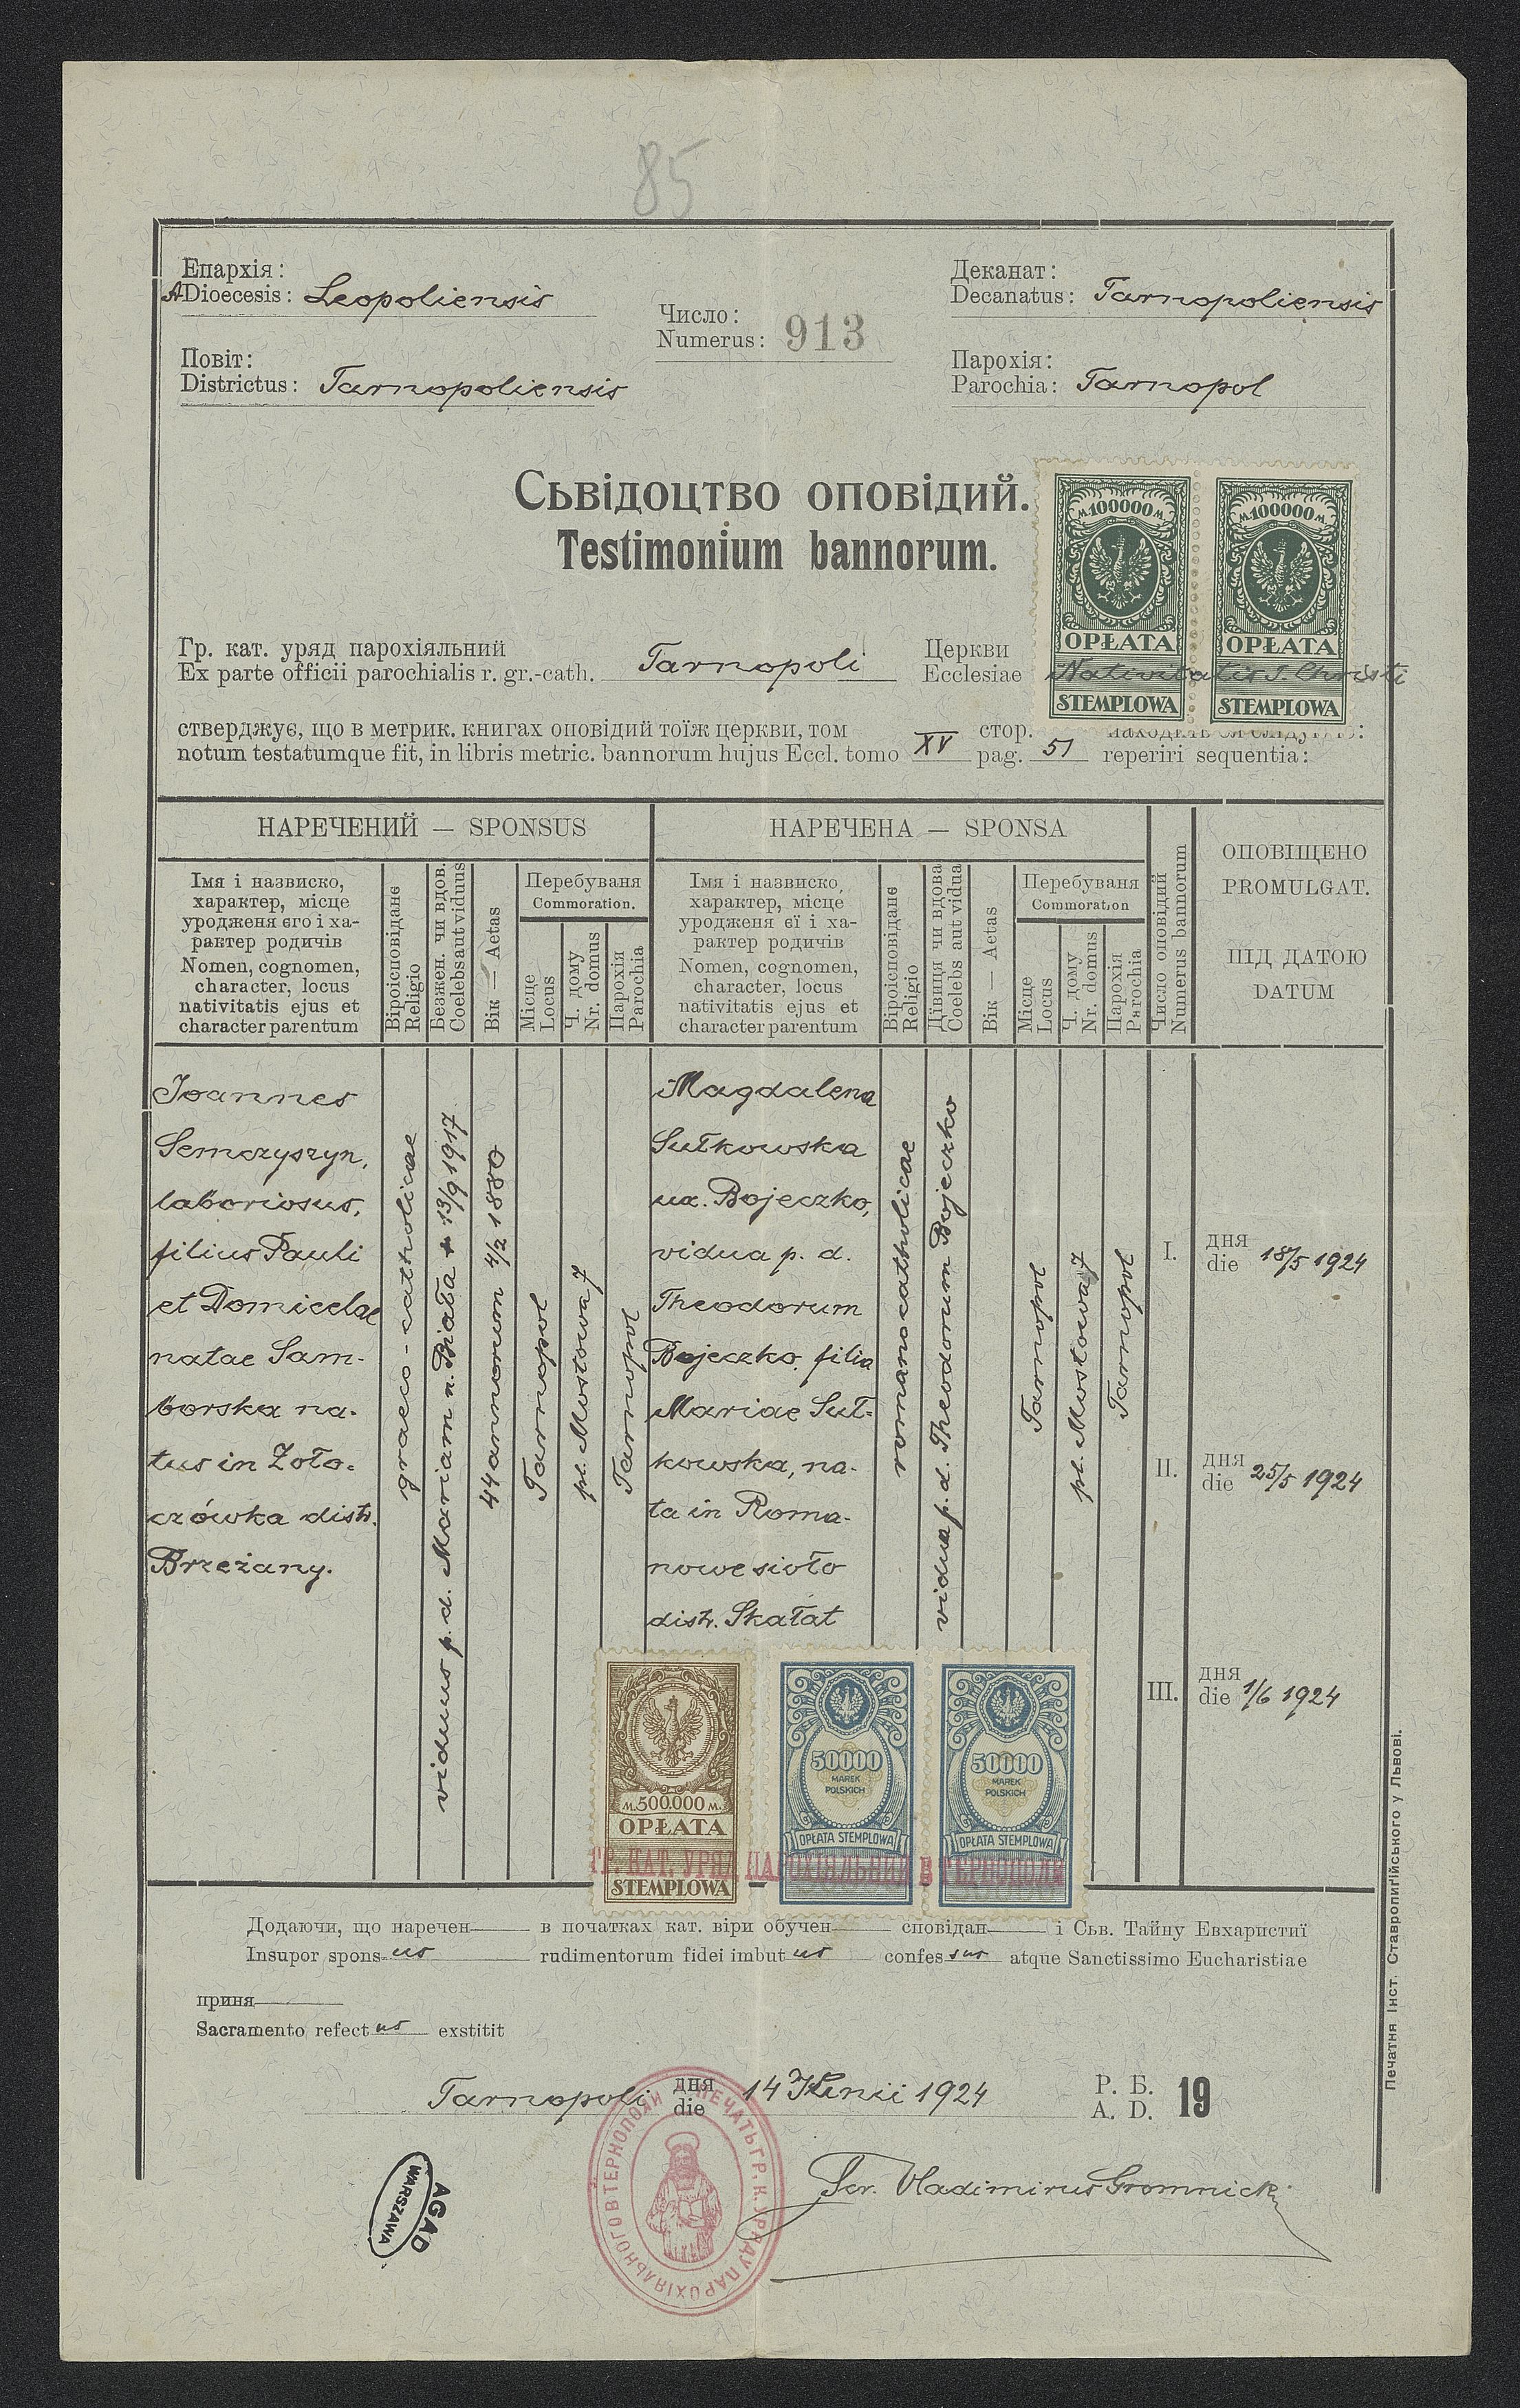 85
Епархія:
A-Dioecesis: Leopoliensis
Число:
Numerus: 913
Деканат:
Decanatus: Tarnopoliensis
Повіт:
Districtus: Tarnopoliensis
Парохія:
Parochia: Tarnopol
Сьвідоцтво оповідий.
Testimonium bannorum.
м.100000м.
OPŁATA
STEMPLOWA
м.100000м.
OPŁATA
STEMPLOWA
Гр. кат. уряд парохіяльний
Ex parte officii parochialis r. gr.-cath. Tarnopoli
Церкви
Ecclesiae Nativitatis J. Christi
стверджує, що в метрик. книгах оповідий тоїж церкви, том стор.
notum testatumque fit, in libris metric. bannorum hujus Eccl. tomo XV pag. 51 reperiri sequentia:
НАРЕЧЕНИЙ — SPONSUS
НАРЕЧЕНА — SPONSA
Імя і назвиско,
характер, місце
уродженя єго і ха-
рактер родичів
Nomen, cognomen,
character, locus
nativitatis ejus et
character parentum
Віроісповідане
Religio
Безжен. чи вдов.
Coelebs aut viduus
Вік — Aetas
Перебуваня
Commoration.
Місце
Locus
Ч. дому
Nr. domus
Парохія
Parochia
Імя і назвиско,
характер, місце
уродженя єї і ха-
рактер родичів
Nomen, cognomen,
character, locus
nativitatis ejus et
character parentum
Віроісповідане
Religio
Дївиця чи вдова
Coelebs aut vidua
Вік — Aetas
Перебуваня
Commoration
Місце
Locus
Ч. дому
Nr. domus
Парохія
Parochia
Число оповідий
Numerus bannorum
ОПОВІЩЕНО
PROMULGAT.
ПІД ДАТОЮ
DATUM
Joannes
Semczyszyn,
laboriosus,
filius Pauli
et Domicelae
natae Sam-
borska na-
tus in Zoło-
czówka distr.
Brzeżany.
graeco-catholicae
viduus p. d. Mariam n. Biała + 13/9 1917
44 annorum 4/2 1880
Tarnopol
pl. Mostowa 7
Tarnopol
Magdalena
Sułkowska
ux. Bojeczko,
vidua p. d.
Theodorum
Bojeczko, filia
Mariae Suł-
kowska, na-
ta in Roma-
nowe sioło
distr. Skałat
romano catholicae
vidua p. d. Theodorum Bojeczko
Tarnopol
pl. Mostowa 7
Tarnopol
I. дня
die 18/5 1924
II. дня
die 25/5 1924
III. дня
die 1/6 1924
м.500.000 м.
OPŁATA
STEMPLOWA
50000
MAREK
POLSKICH
OPŁATA STEMPLOWA
50000
MAREK
POLSKICH
OPŁATA STEMPLOWA
ГР. КАТ. УРЯД ПАРОХІЯЛЬНИЙ В ТЕРНОПОЛИ
Додаючи, що наречен в початках кат. віри обучен сповідан і Сьв. Тайну Евхаристиї
Insupor spons-us rudimentorum fidei imbut us confes sus atque Sanctissimo Eucharistiae
приня
Sacramento refect us exstitit
Tarnopoli дня
die 14 Junii 1924
Р. Б.
A. D. 19
ПЕЧАТЬ ГР. К. УРЯДУ ПАРОХІЯЛЬНОГО В ТЕРНОПОЛИ
Vladimirus Gromnicki
AGAD
WARSZAWA
Печатня Інст. Ставропигійського у Львові.